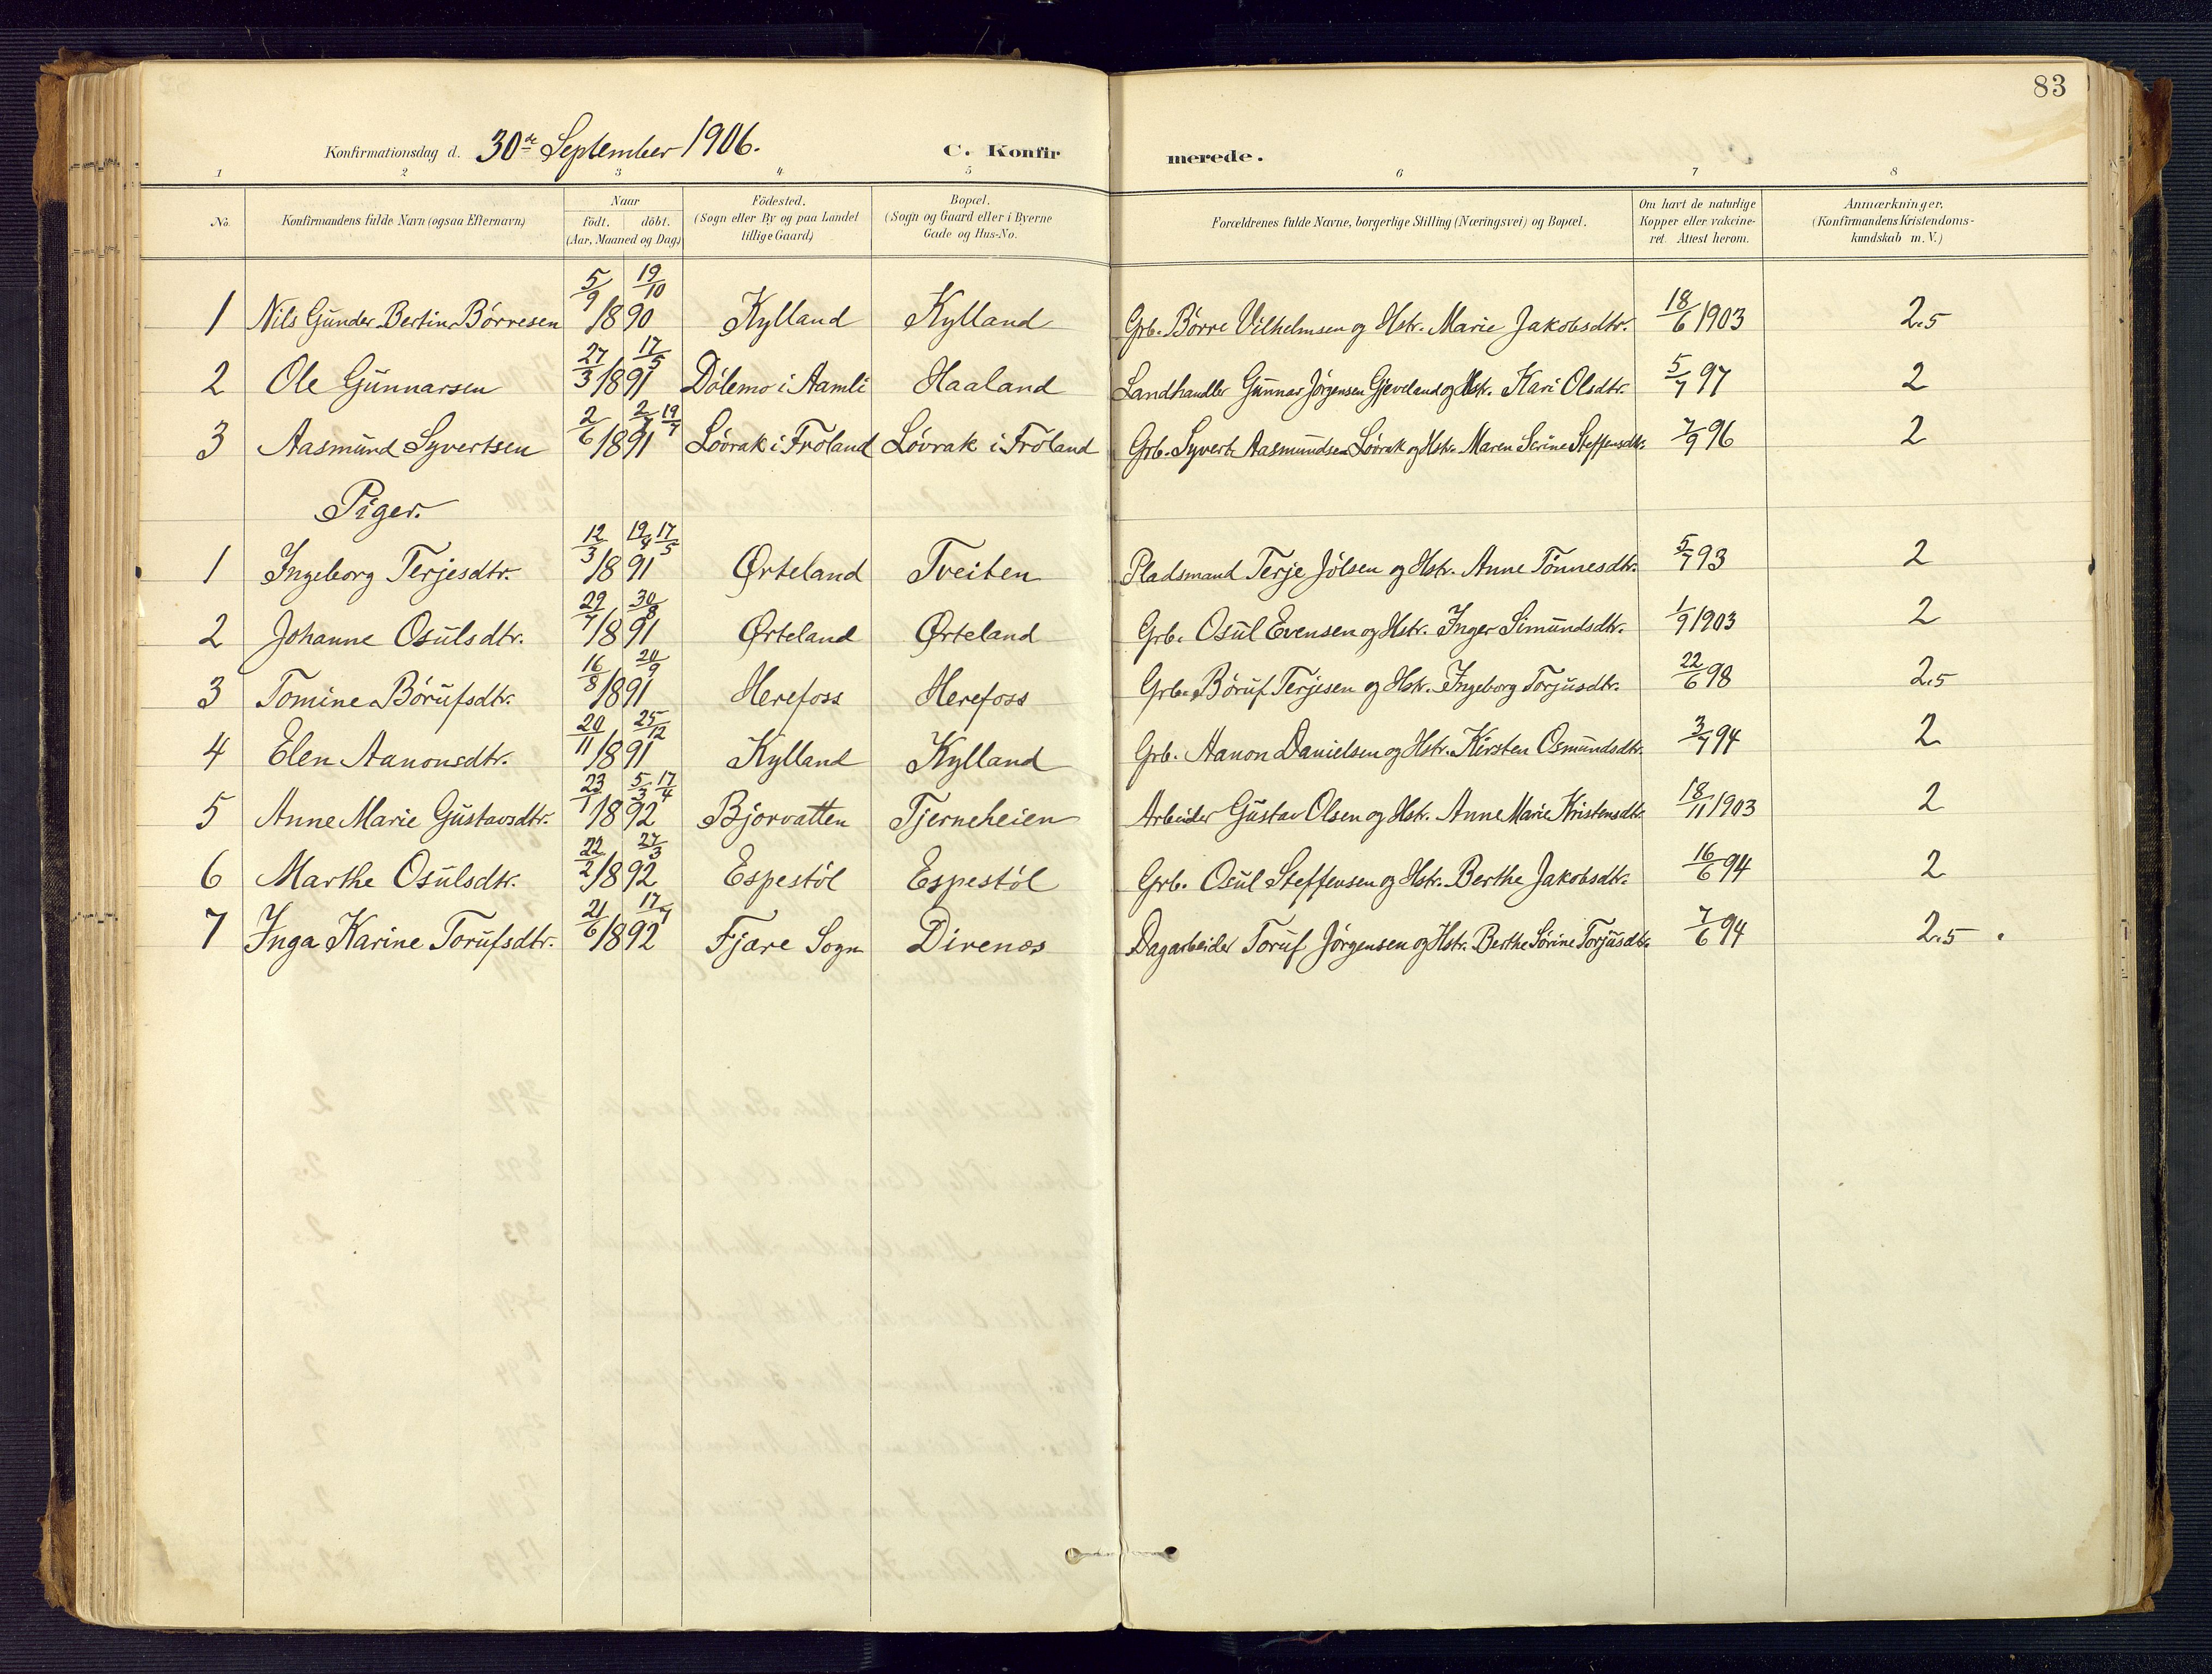 83
Konfirmationsdag d. 30de September 1906. C. Konfirmerede.
1 2 3 4 5 6 7 8
No. Konfirmandens fulde Navn (ogsaa Efternavn) Naar födt. döbt. (Aar, Maaned og Dag) Födested. (Sogn eller By og paa Landet tillige Gaard) Bopæl. (Sogn og Gaard eller i Byerne Gade og Hus-No. Forældrenes fulde Navne, borgerlige Stilling (Næringsvei) og Bopæl. Om havt de naturlige Kopper eller vakcineret. Attest herom. Anmærkninger. (Konfirmandens Kristendomskundskab m. V.)
1 Nils Gunder Bertin Börresen 5/9 19/10 1890 Kylland Kylland Grb. Börre Vilhelmsen og Hstr. Marie Jakobsdtr. 18/6 1903 2.5
2 Ole Gunnarsen 27/3 17/5 1891 Dölemo i Aamli Haaland Landhandler Gunnar Jörgensen Gjeveland og Hstr. Kari Olsdtr. 5/7 97 2
3 Aasmund Syvertsen 2/6 2/7 19/7 1891 Lövrak i Froland Lövrak i Froland Grb. Syvert Aasmundsen Lövrak og Hstr. Maren Serine Steffensdtr. 7/9 96 2
Piger.
1 Ingeborg Terjesdtr. 12/3 19/4 17/5 1891 Örteland Tveiten Pladsmand Terje Jölsen og Hstr. Anne Tönnesdtr. 5/7 93 2
2 Johanne Osulsdtr. 29/7 30/8 1891 Örteland Örteland Grb. Osul Evensen og Hstr. Inger Simundsdtr. 1/9 1903 2
3 Tomine Börufsdtr. 16/8 20/9 1891 Herefoss Herefoss Grb. Böruf Terjesen og Hstr. Ingeborg Torjusdtr. 22/6 98 2.5
4 Elen Aanonsdtr. 20/11 25/12 1891 Kylland Kylland Grb. Aanon Danielsen og Hstr. Kirsten Osmundsdtr. 3/7 94 2
5 Anne Marie Gustavsdtr. 23/1 5/3 17/4 1892 Björvatten Tjerneheien Arbeider Gustav Olsen og Hstr. Anne Marie Kristensdtr. 18/11 1903 2
6 Marthe Osulsdtr. 22/2 27/3 1892 Espestöl Espestöl Grb. Osul Steffensen og Hstr. Berthe Jakobsdtr. 16/6 94 2
7 Inga Karine Torufsdtr. 21/6 17/7 1892 Fjære Sogn Direnæs Dagarbeider Toruf Jörgensen og Hstr. Berthe Sörine Torjusdtr. 7/6 94 2.5